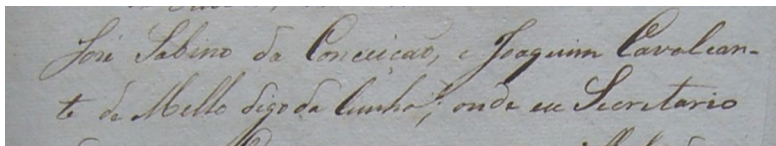 José Sabino da Conceicaõ, e Joaquim Cavalcan-
te de Mello digo da Cunha; onde eu Secretario